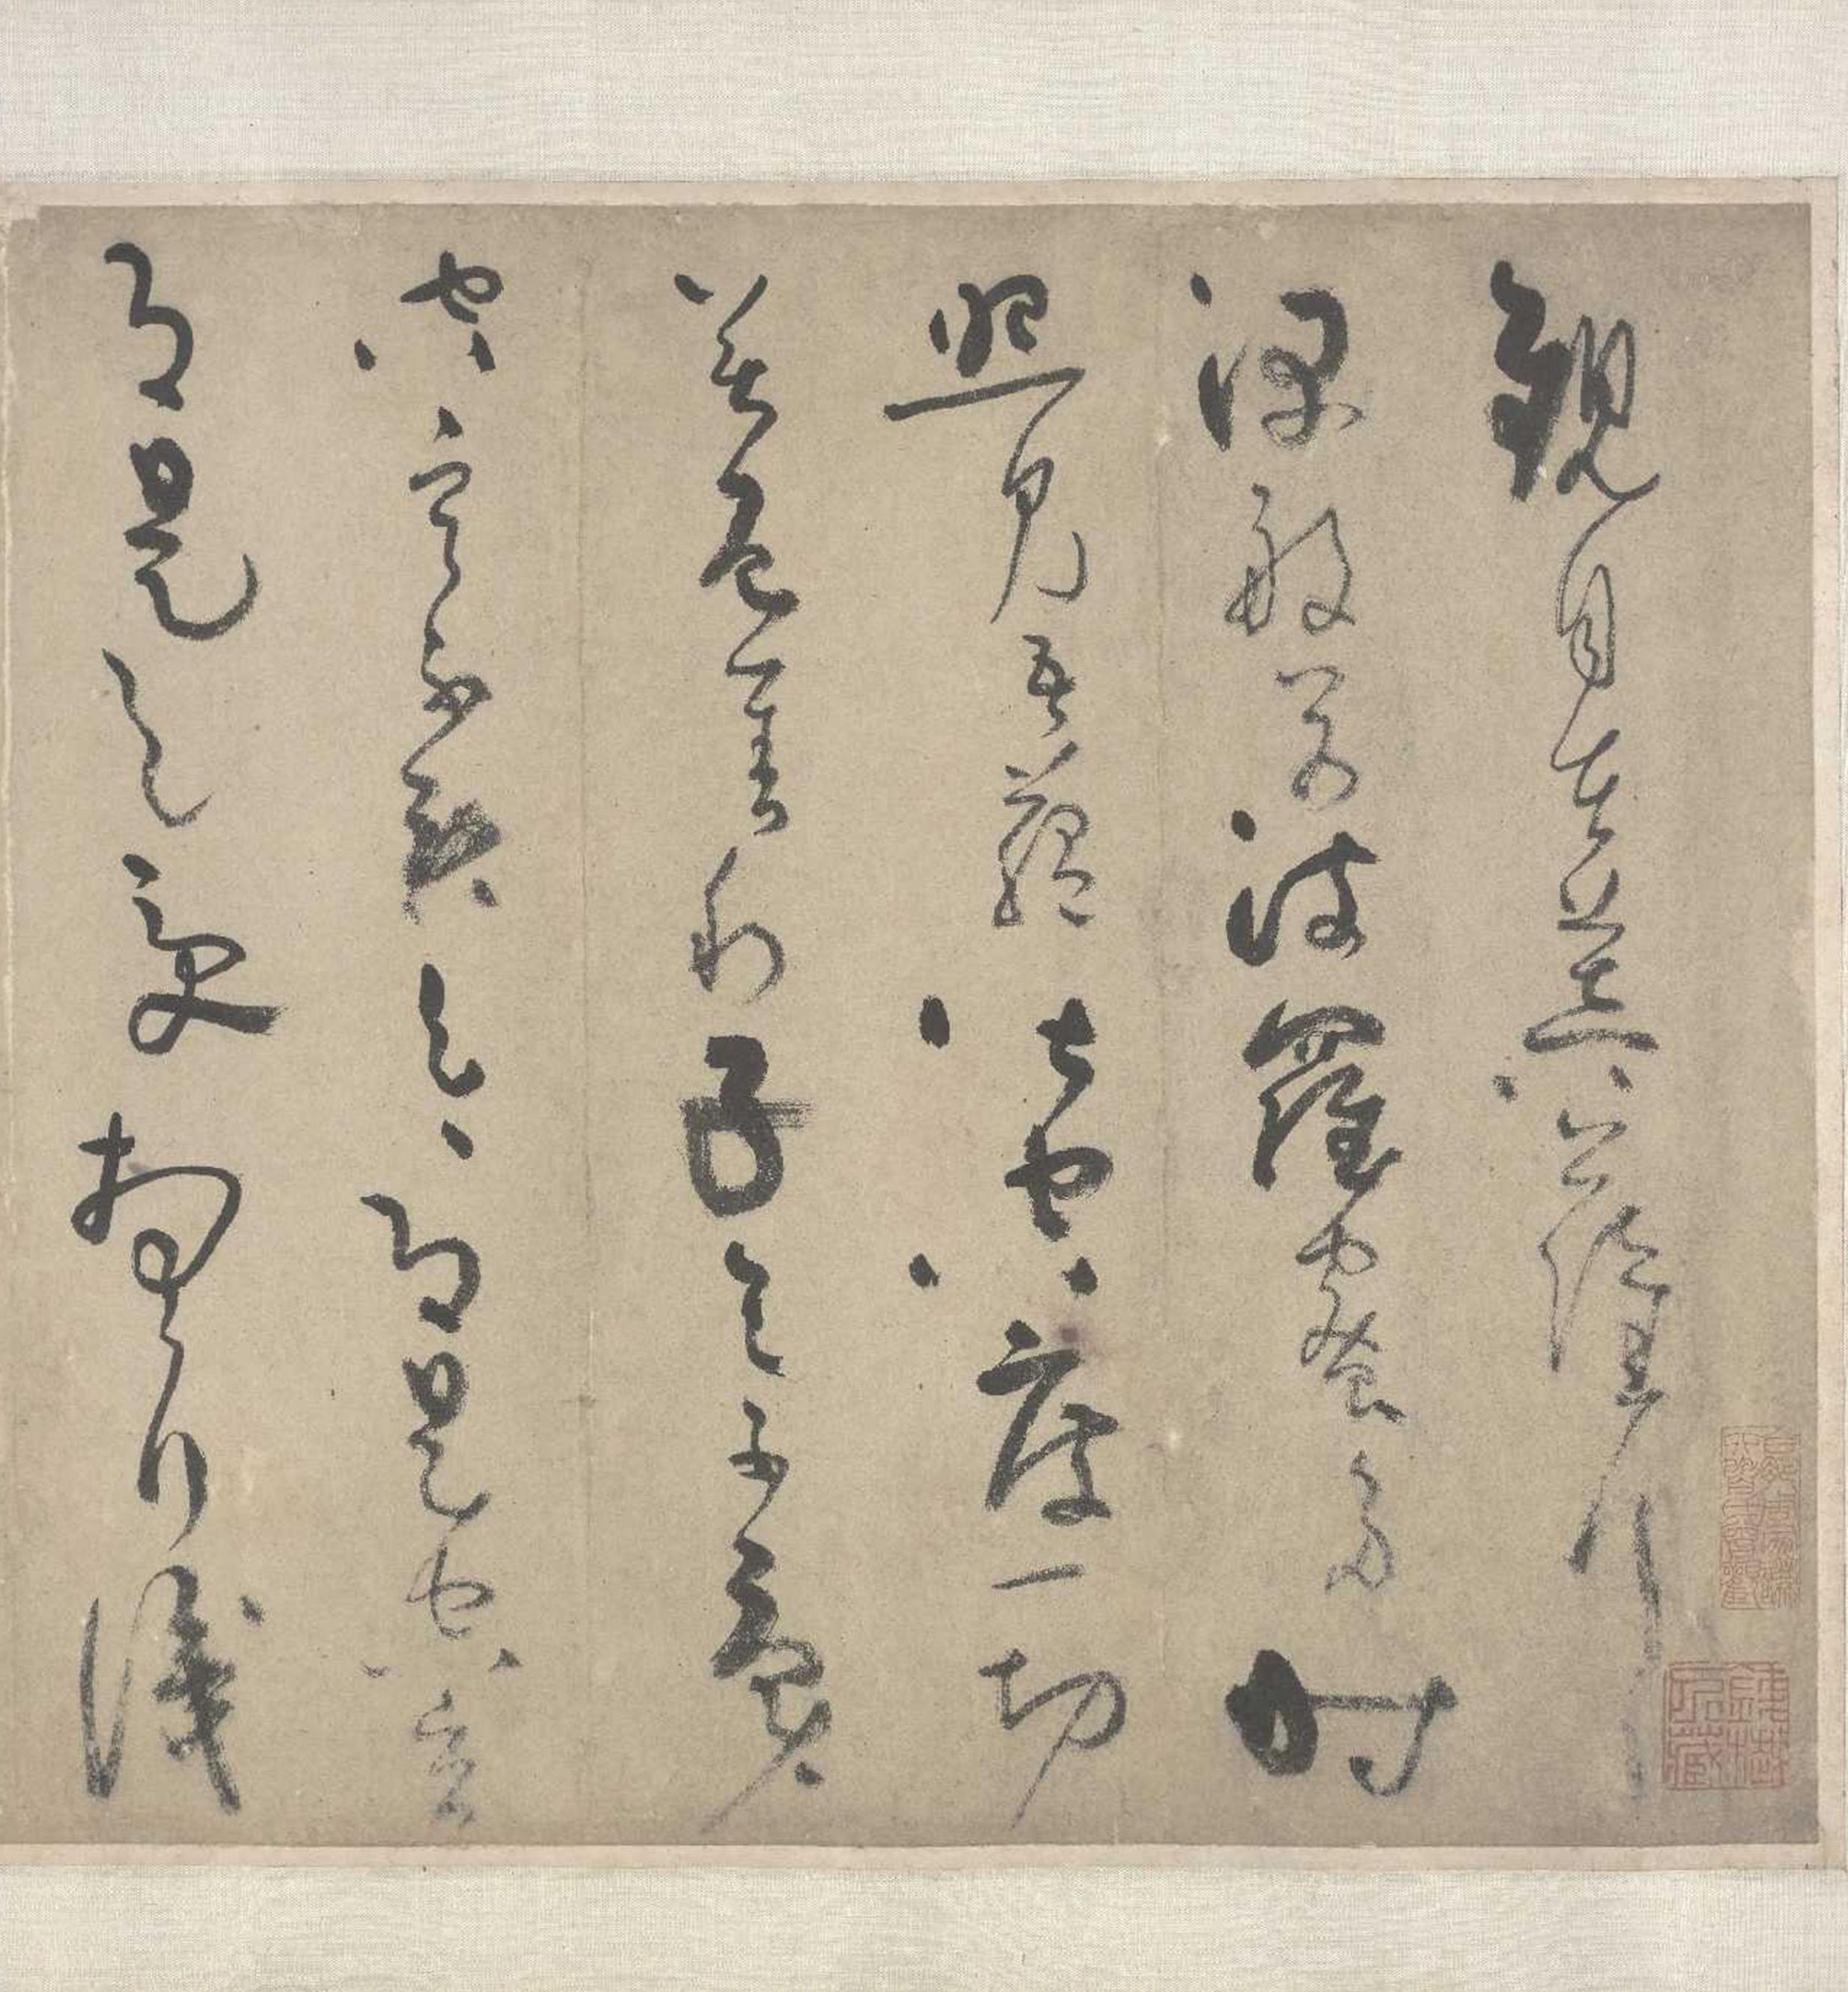 觀自在菩薩行
深般若波羅蜜多時
照見五蘊皆空度一切
苦厄舍利子色不異
空空不異色色即是空空
即是色受想行識